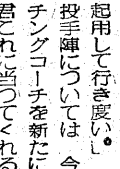 起用して行き度い。
投手陣については、今
チングコーチを新たに
君これに当つてくれる